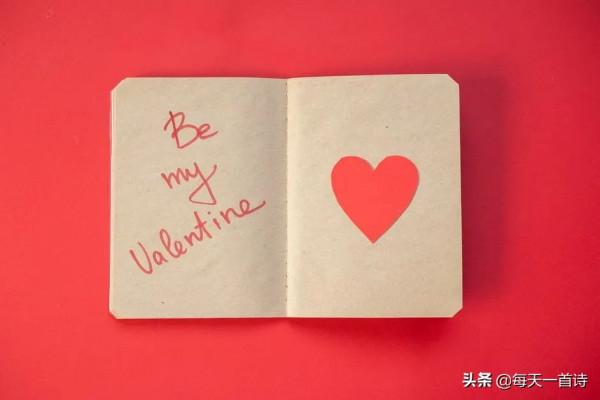 Be
my
Valentine
头条 @每天一首诗